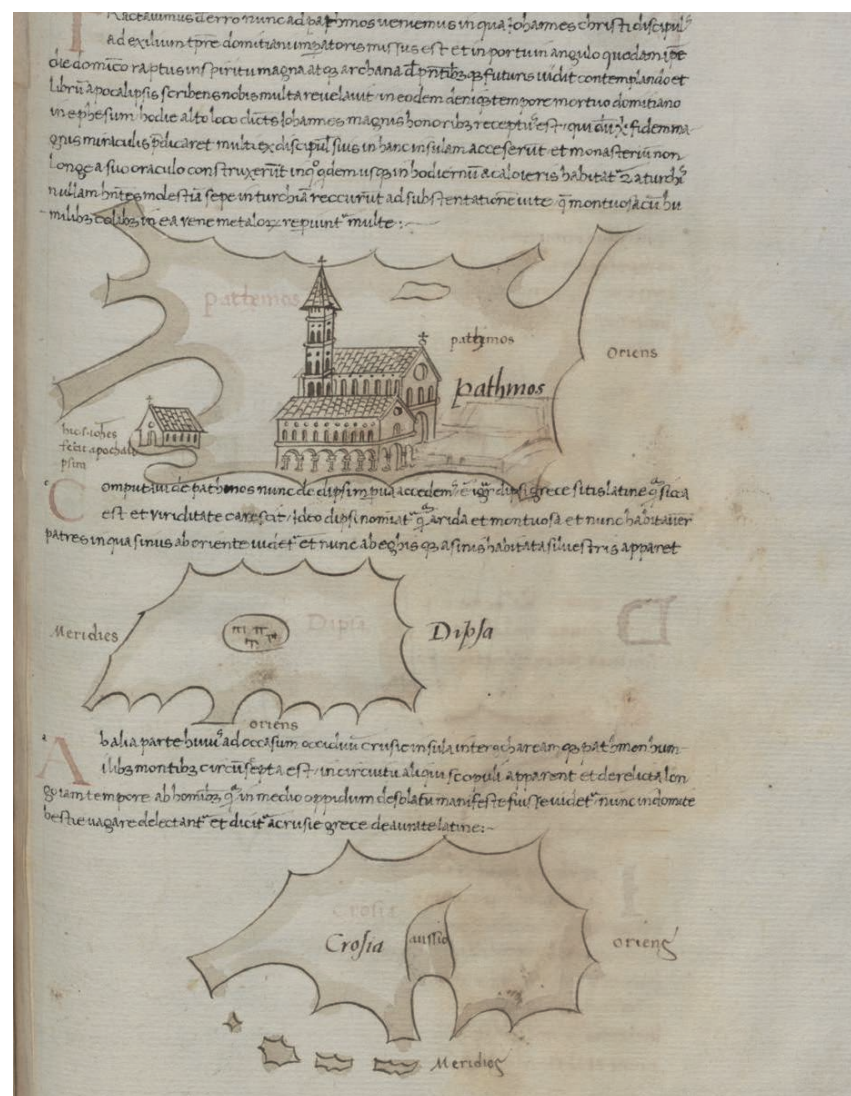 Ractauimus de rro nunc ad pathmos ueniemus in qua Iohannes christi discipul9
ad exilium tpre domitiani impatoris missus est et in portu in angulo quodam ipse
die domico raptus in spiritu magna atqз archana de pntibз qз futuris uidit contemplando et
librũ apocalipsis scribens nobis multa reuelauit in eodem deniqз tempore mortuo domitiano
in ephesum hodie alto loco dicts Iohannes magnis honoribз receptus est qui dũ fidem ma
gnis miraculis pdicaret multi ex discipul suis in hanc insulam acceserũt et monasteriũ non
longe a suo oraculo construxerũt in usqз in hodiernũ a caloieris habitat
nullam hntes molestiã sepe in turchiã reccurũt ad substentatione uite q montuosa cũ hu
milibз colibз in ea uene metaloꝝ repiunt multe :
pathmos
pathmos
pathmos
Oriens
hic s iohes
fecit apochali
psim
Computaui de pathmos nunc de dipsim accedem dipsi grece sitis latine sicca
est et uiriditate carescit Ideo dipsi nomiat arida et montuosa et nunc habitauer
patres in qua sinus ab oriente uidet et nunc ab eghis qз asinis habitata siluestris apparet
Meridies
Dipsa
Dipsa
oriens
Ab alia parte huius ad occasum occiduũ crusie insula inter gharcam qз pathmon hum
ilibз montibз circũsepta est in circuitu aliqui scopuli apparent et derelicta lon
go iam tempore ab homibз in medio oppidum desolatũ manifeste fuisse uidet nunc indomite
bestie uagare delectant et dicit a crusie grece deaurate latine :~
Crosia
Crosia
oriens
Meridies